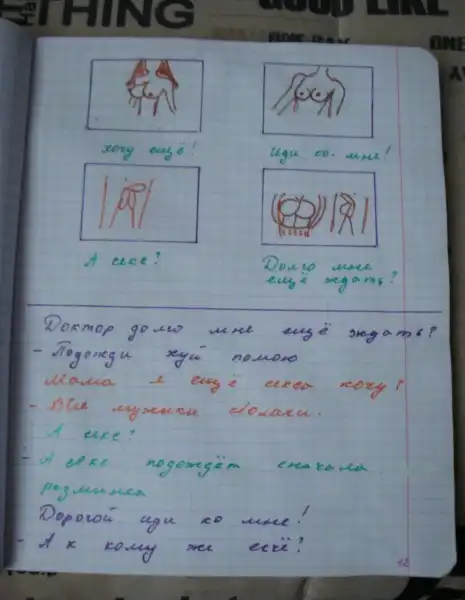 THING
GOOD LIKE
ONE DAY
ONE
хочу ещё!
иди ко мне!
А секс?
Долго мне
ещё ждать?
Доктор долго мне ещё ждать?
- Подожди хуй помою
Мама я ещё секса хочу!
- Все мужики сволочи.
А секс?
- А секс подождёт сначала
разминка
Дорогой иди ко мне!
- А к кому же
12